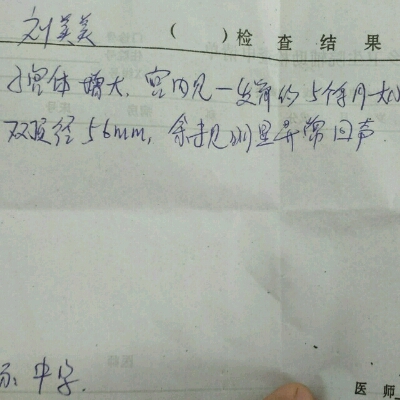 刘美美 ( )检查结果
子宫体增大，宫内见一发育约5个月大
双顶径56mm，余未见明显异常回声
医师